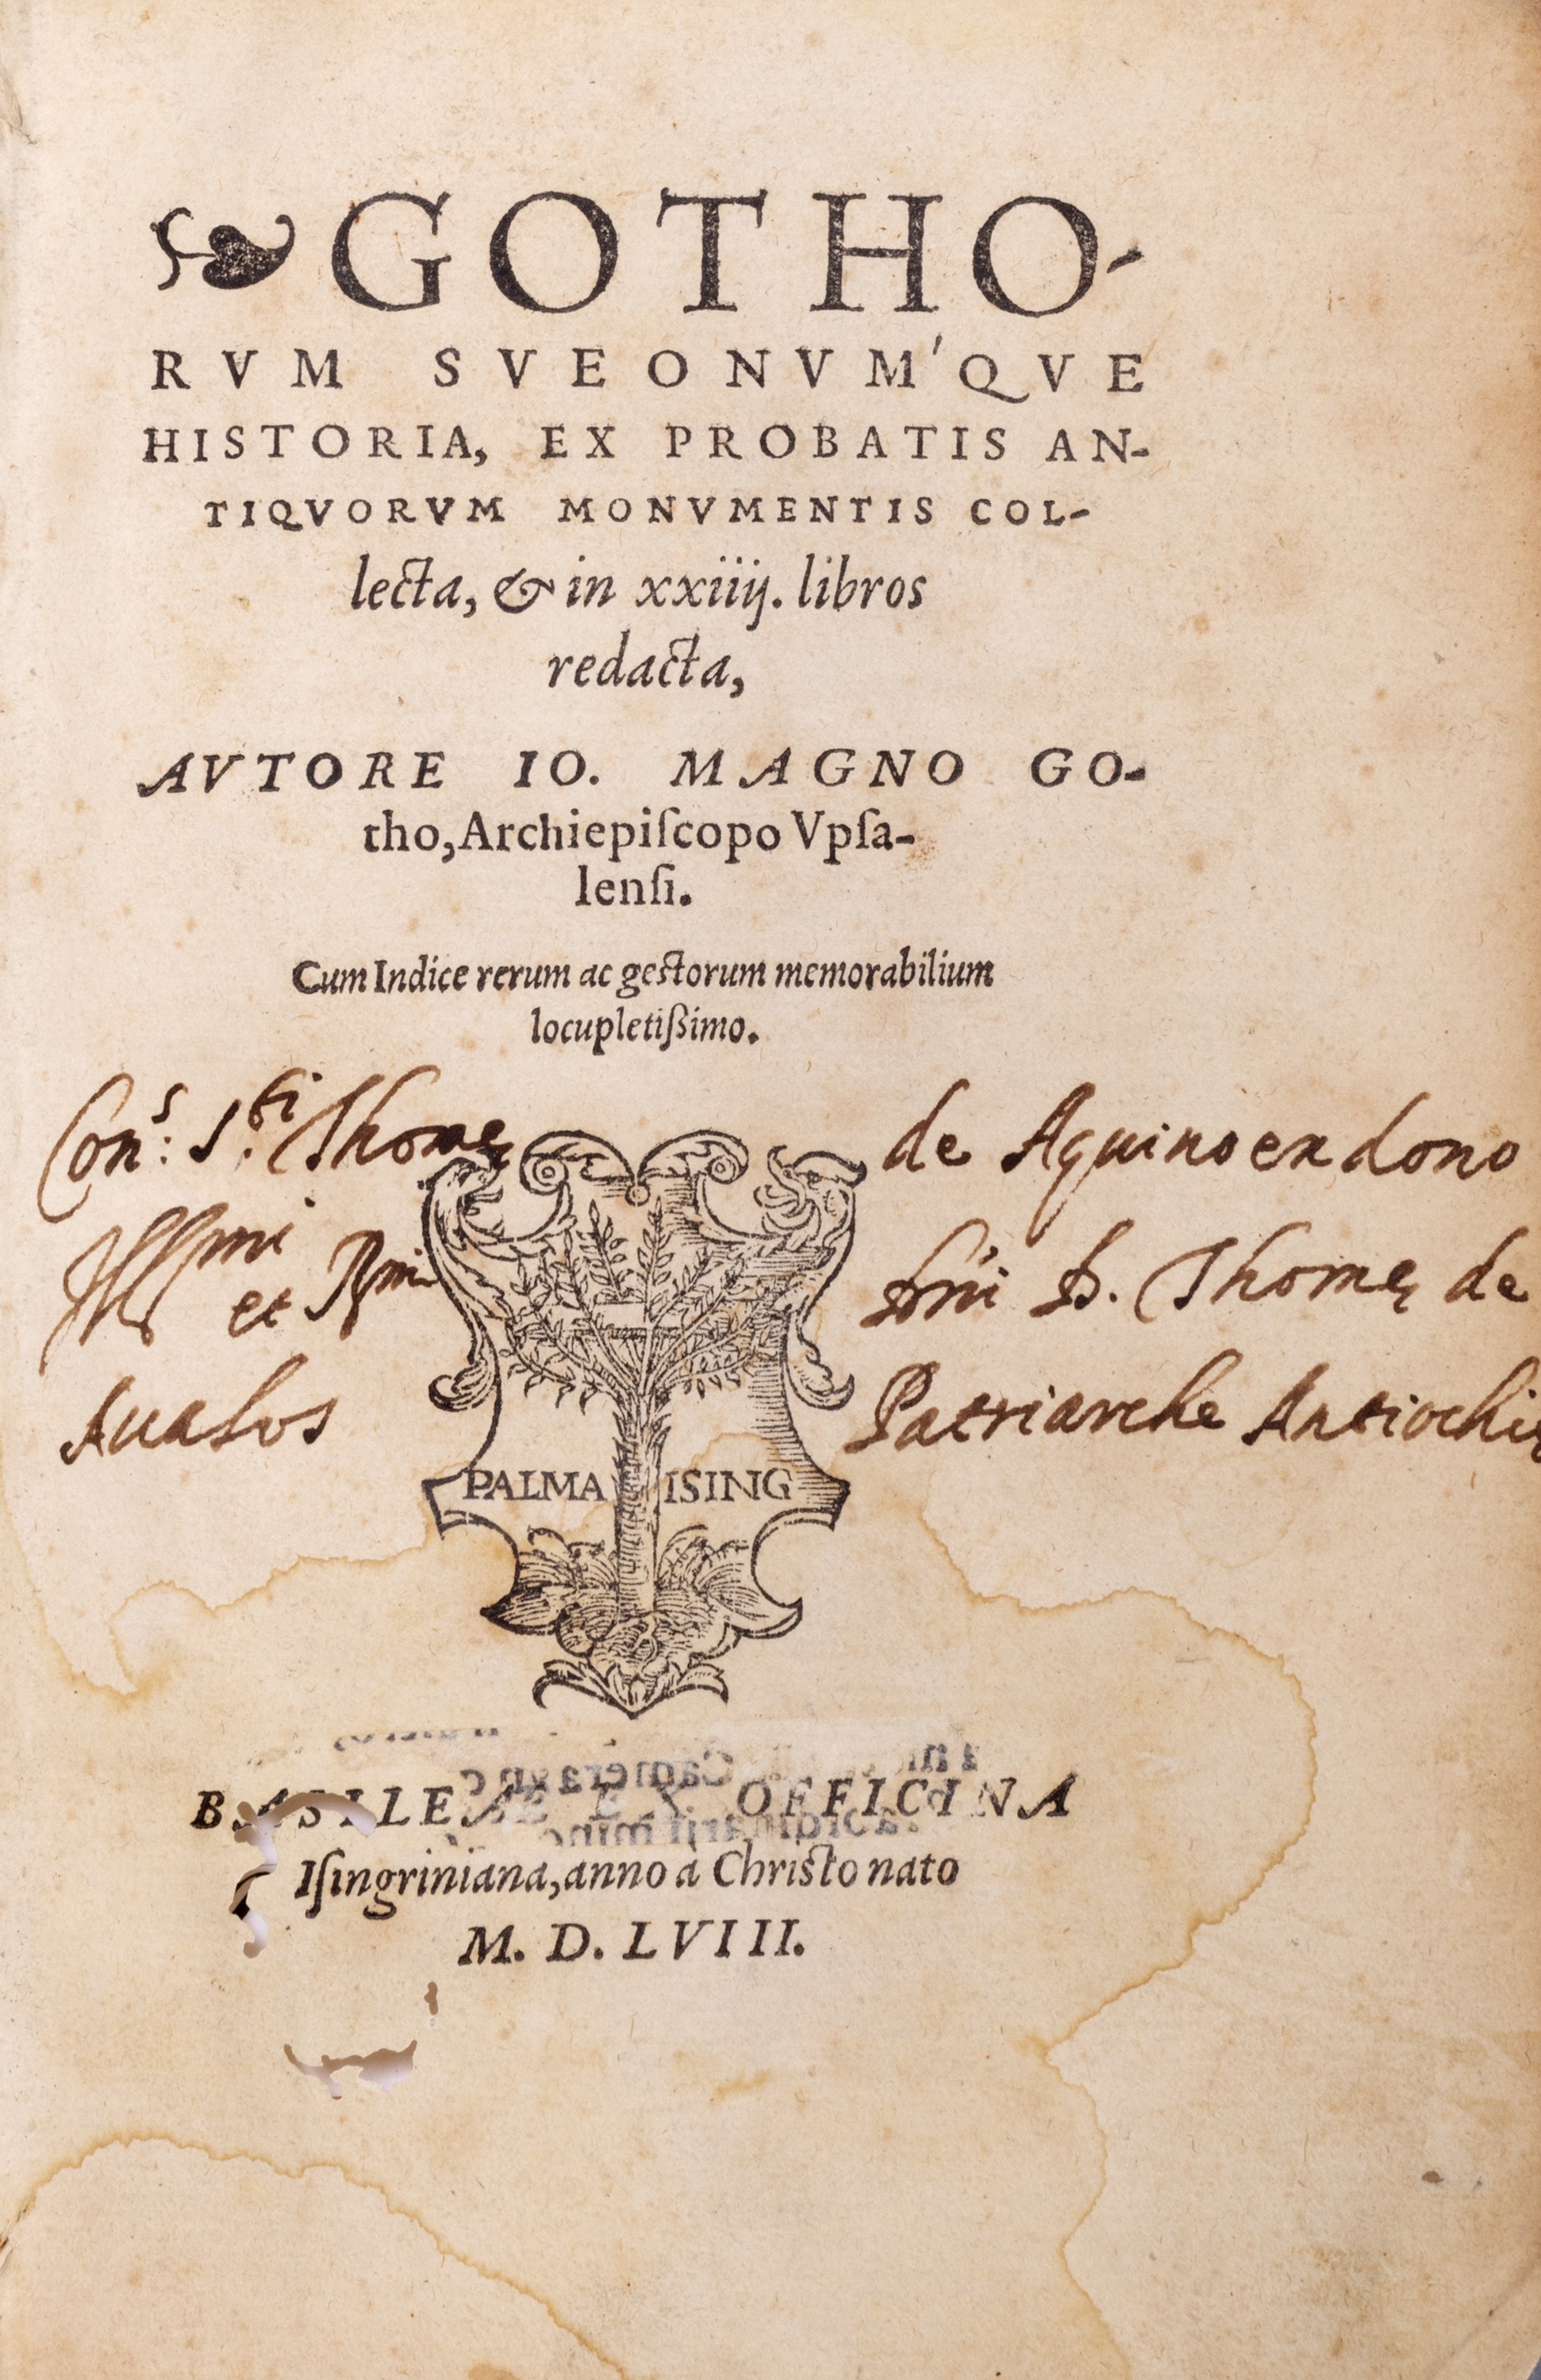 GOTHO-
RVM SVEONVM'QVE
HISTORIA, EX PROBATIS AN-
TIQVORVM MONVMENTIS COL-
lecta, & in xxiiij. libros
redacta,
AVTORE IO. MAGNO GO-
tho, Archiepiſcopo Vpſa-
lenſi.
Cum Indice rerum ac gestorum memorabilium
locupletißimo.
Con:s S.ti Thomę de Aquino ex dono
Illmi et Rmi Dni D. Thomę de
Aualos Patriarche Antiochię
PALMA ISING
BASILEAE EX OFFICINA
Iſingriniana, anno a Christo nato
M. D. LVIII.